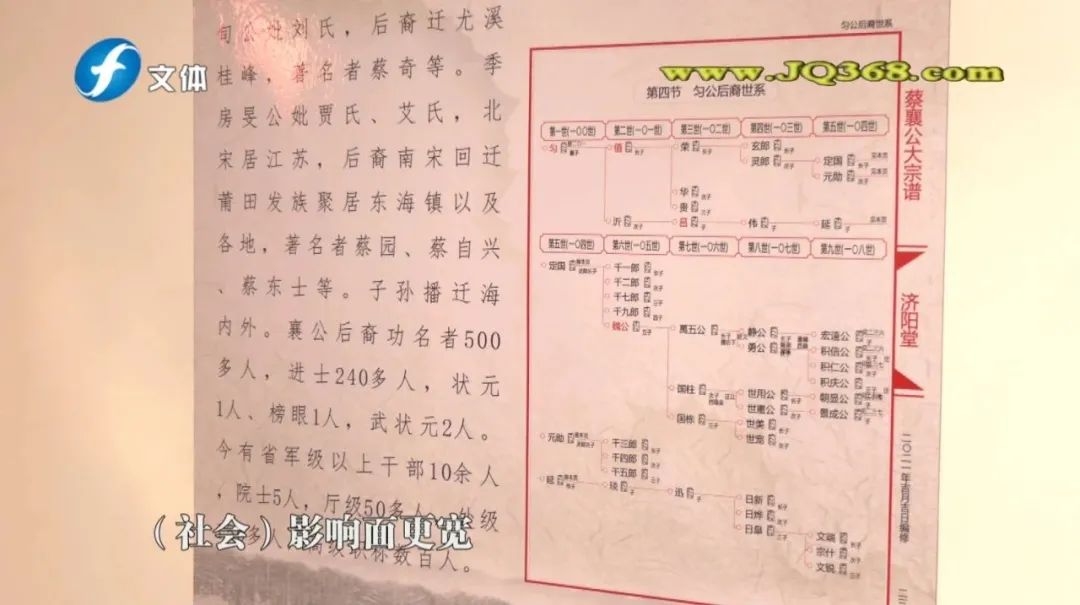 文体
www.JQ368.com
旬公妣刘氏，后裔迁尤溪
桂峰，著名者蔡奇等。季
房旻公妣贾氏、艾氏，北
宋居江苏，后裔南宋回迁
莆田发族聚居东海镇以及
各地，著名者蔡园、蔡自兴
、蔡东士等。子孙播迁海
内外。襄公后裔功名者500
多人，进士240多人，状元
1人、榜眼1人，武状元2人。
今有省军级以上干部10余人
，院士5人，厅级50多人
级职称数百人。
（社会）影响面更宽
匀公后裔世系
第四节 匀公后裔世系
第一世(一〇〇世) 第二世(一〇一世) 第三世(一〇二世) 第四世(一〇三世) 第五世(一〇四世)
匀 值 荣 玄郎
灵郎 定国
元勋
华
贵
沂 吕 伟 延
第五世(一〇四世) 第六世(一〇五世) 第七世(一〇六世) 第八世(一〇七世) 第九世(一〇八世)
定国 千一郎
千二郎
千七郎
千九郎
魏公 万五公 静公 宏远公
勇公 积信公
积仁公
积庆公
国柱 世用公 朝显公
世宪公 景成公
国栋 世美
世宠
元勋 千三郎
千四郎
千五郎
延 琰 迅 日新
日烨
日皋 文瑞
宗什
文锐
蔡襄公大宗谱
济阳堂
二〇二一年吉月吉日编修